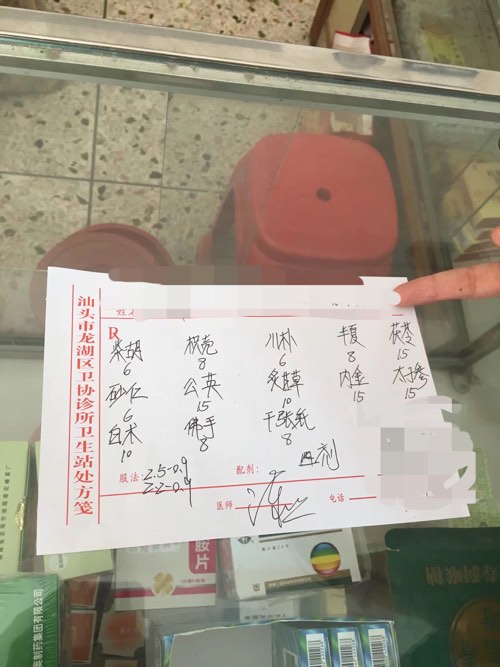 汕头市龙湖区卫协诊所卫生站处方笺
姓名
R
柴胡 枳壳 川朴 半夏 茯苓
6 8 6 8 15
砂仁 公英 炙甘草 内金 太子参
6 15 10 15 15
白术 佛手 千张纸
10 8 8
四剂
服法: 2.5-0.9 配剂:
2.2-0.9
医师 电话
胺片
集团有限公司
润喉糖